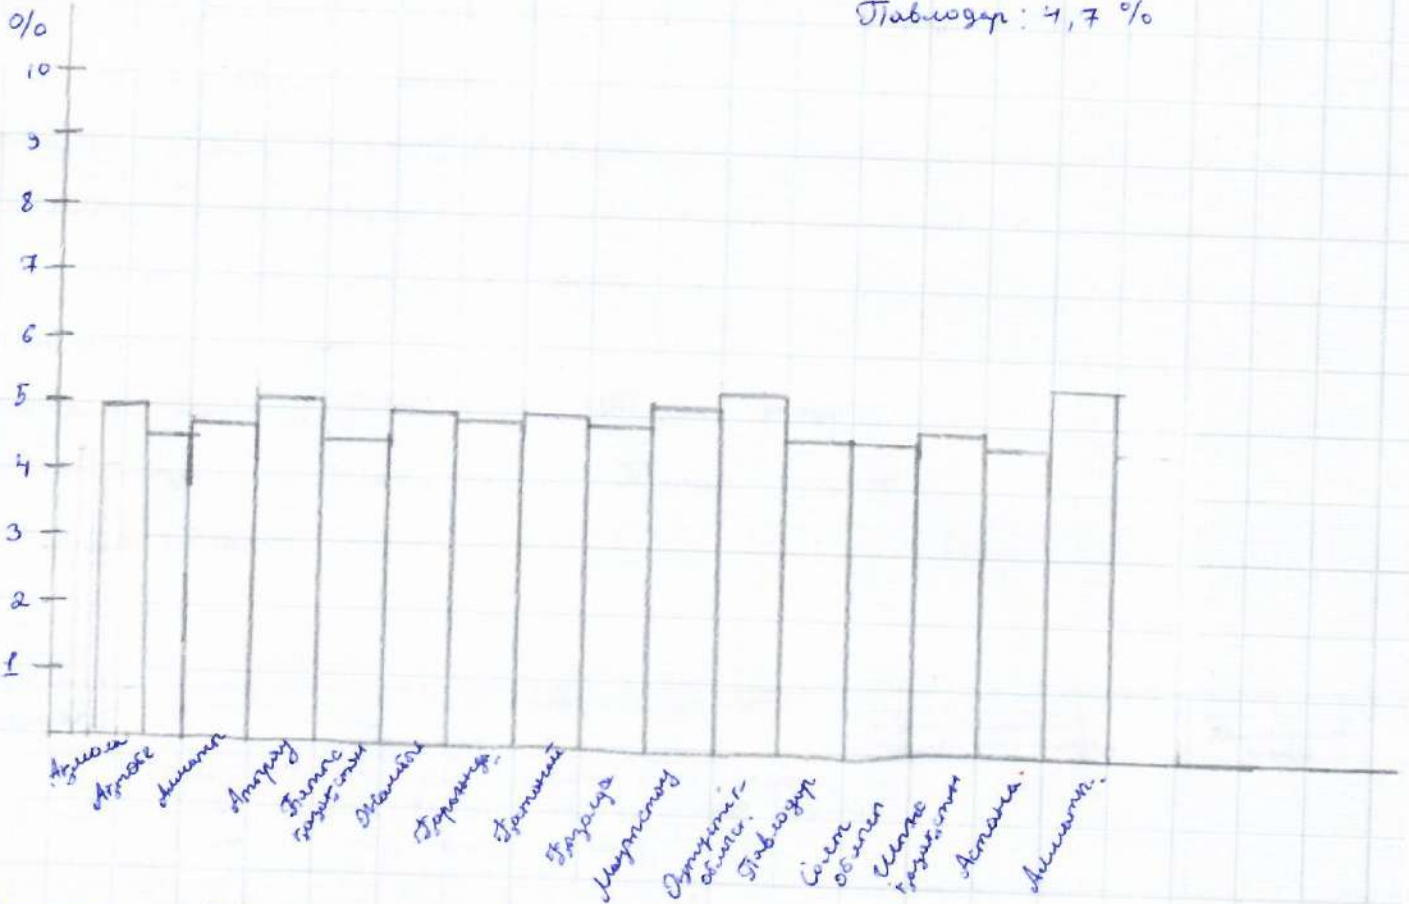 %
Павлодар: 4,7 %
10
9
8
7
6
5
4
3
2
1
Ақмола
Ақтөбе
Алматы
Атырау
Батыс
Қазақстан
Жамбыл
Қарағанды
Қостанай
Маңғыстау
Оңтүстік-
облыс.
Павлодар
Солт
облысы
Шығыс
Қазақстан
Астана.
Алматы.